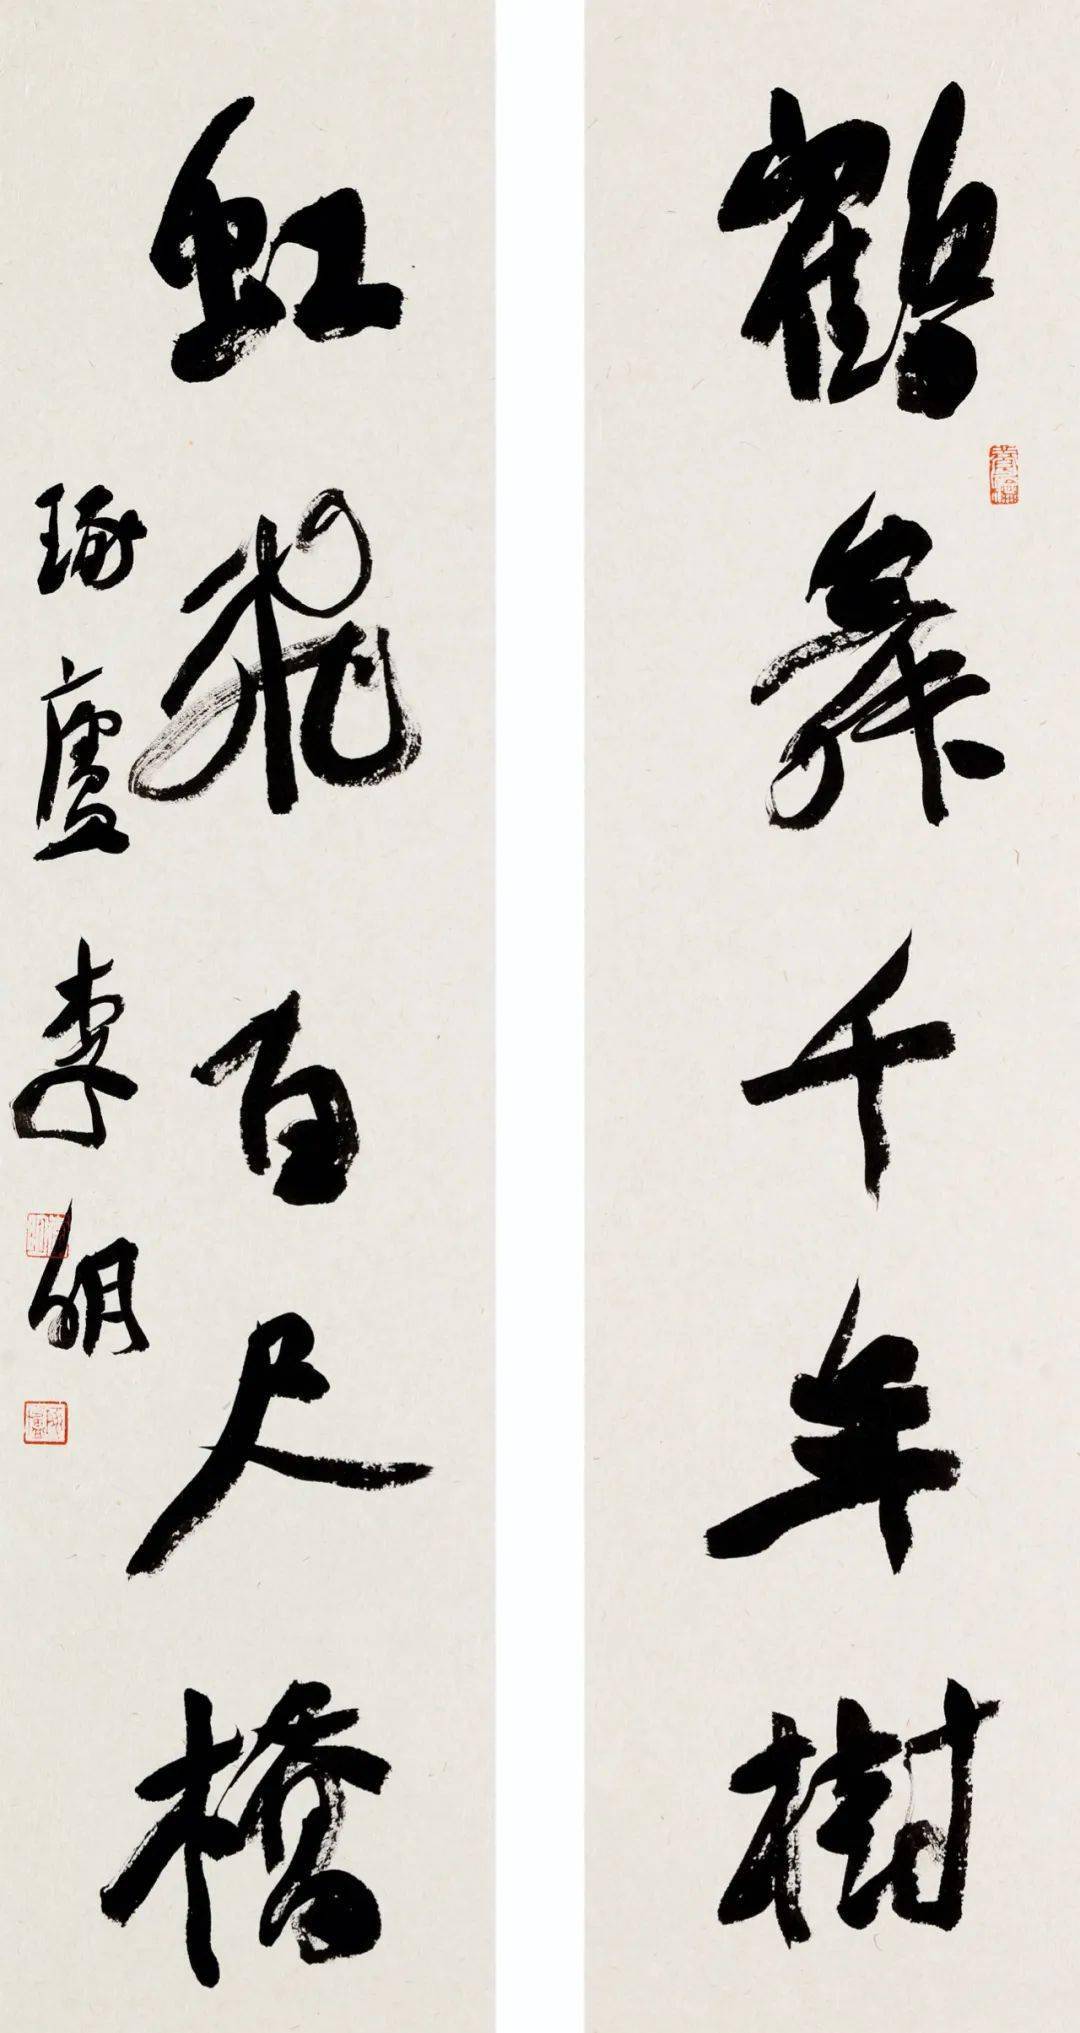 鶴舞千年樹
虹飛百尺橋
琢廬李明